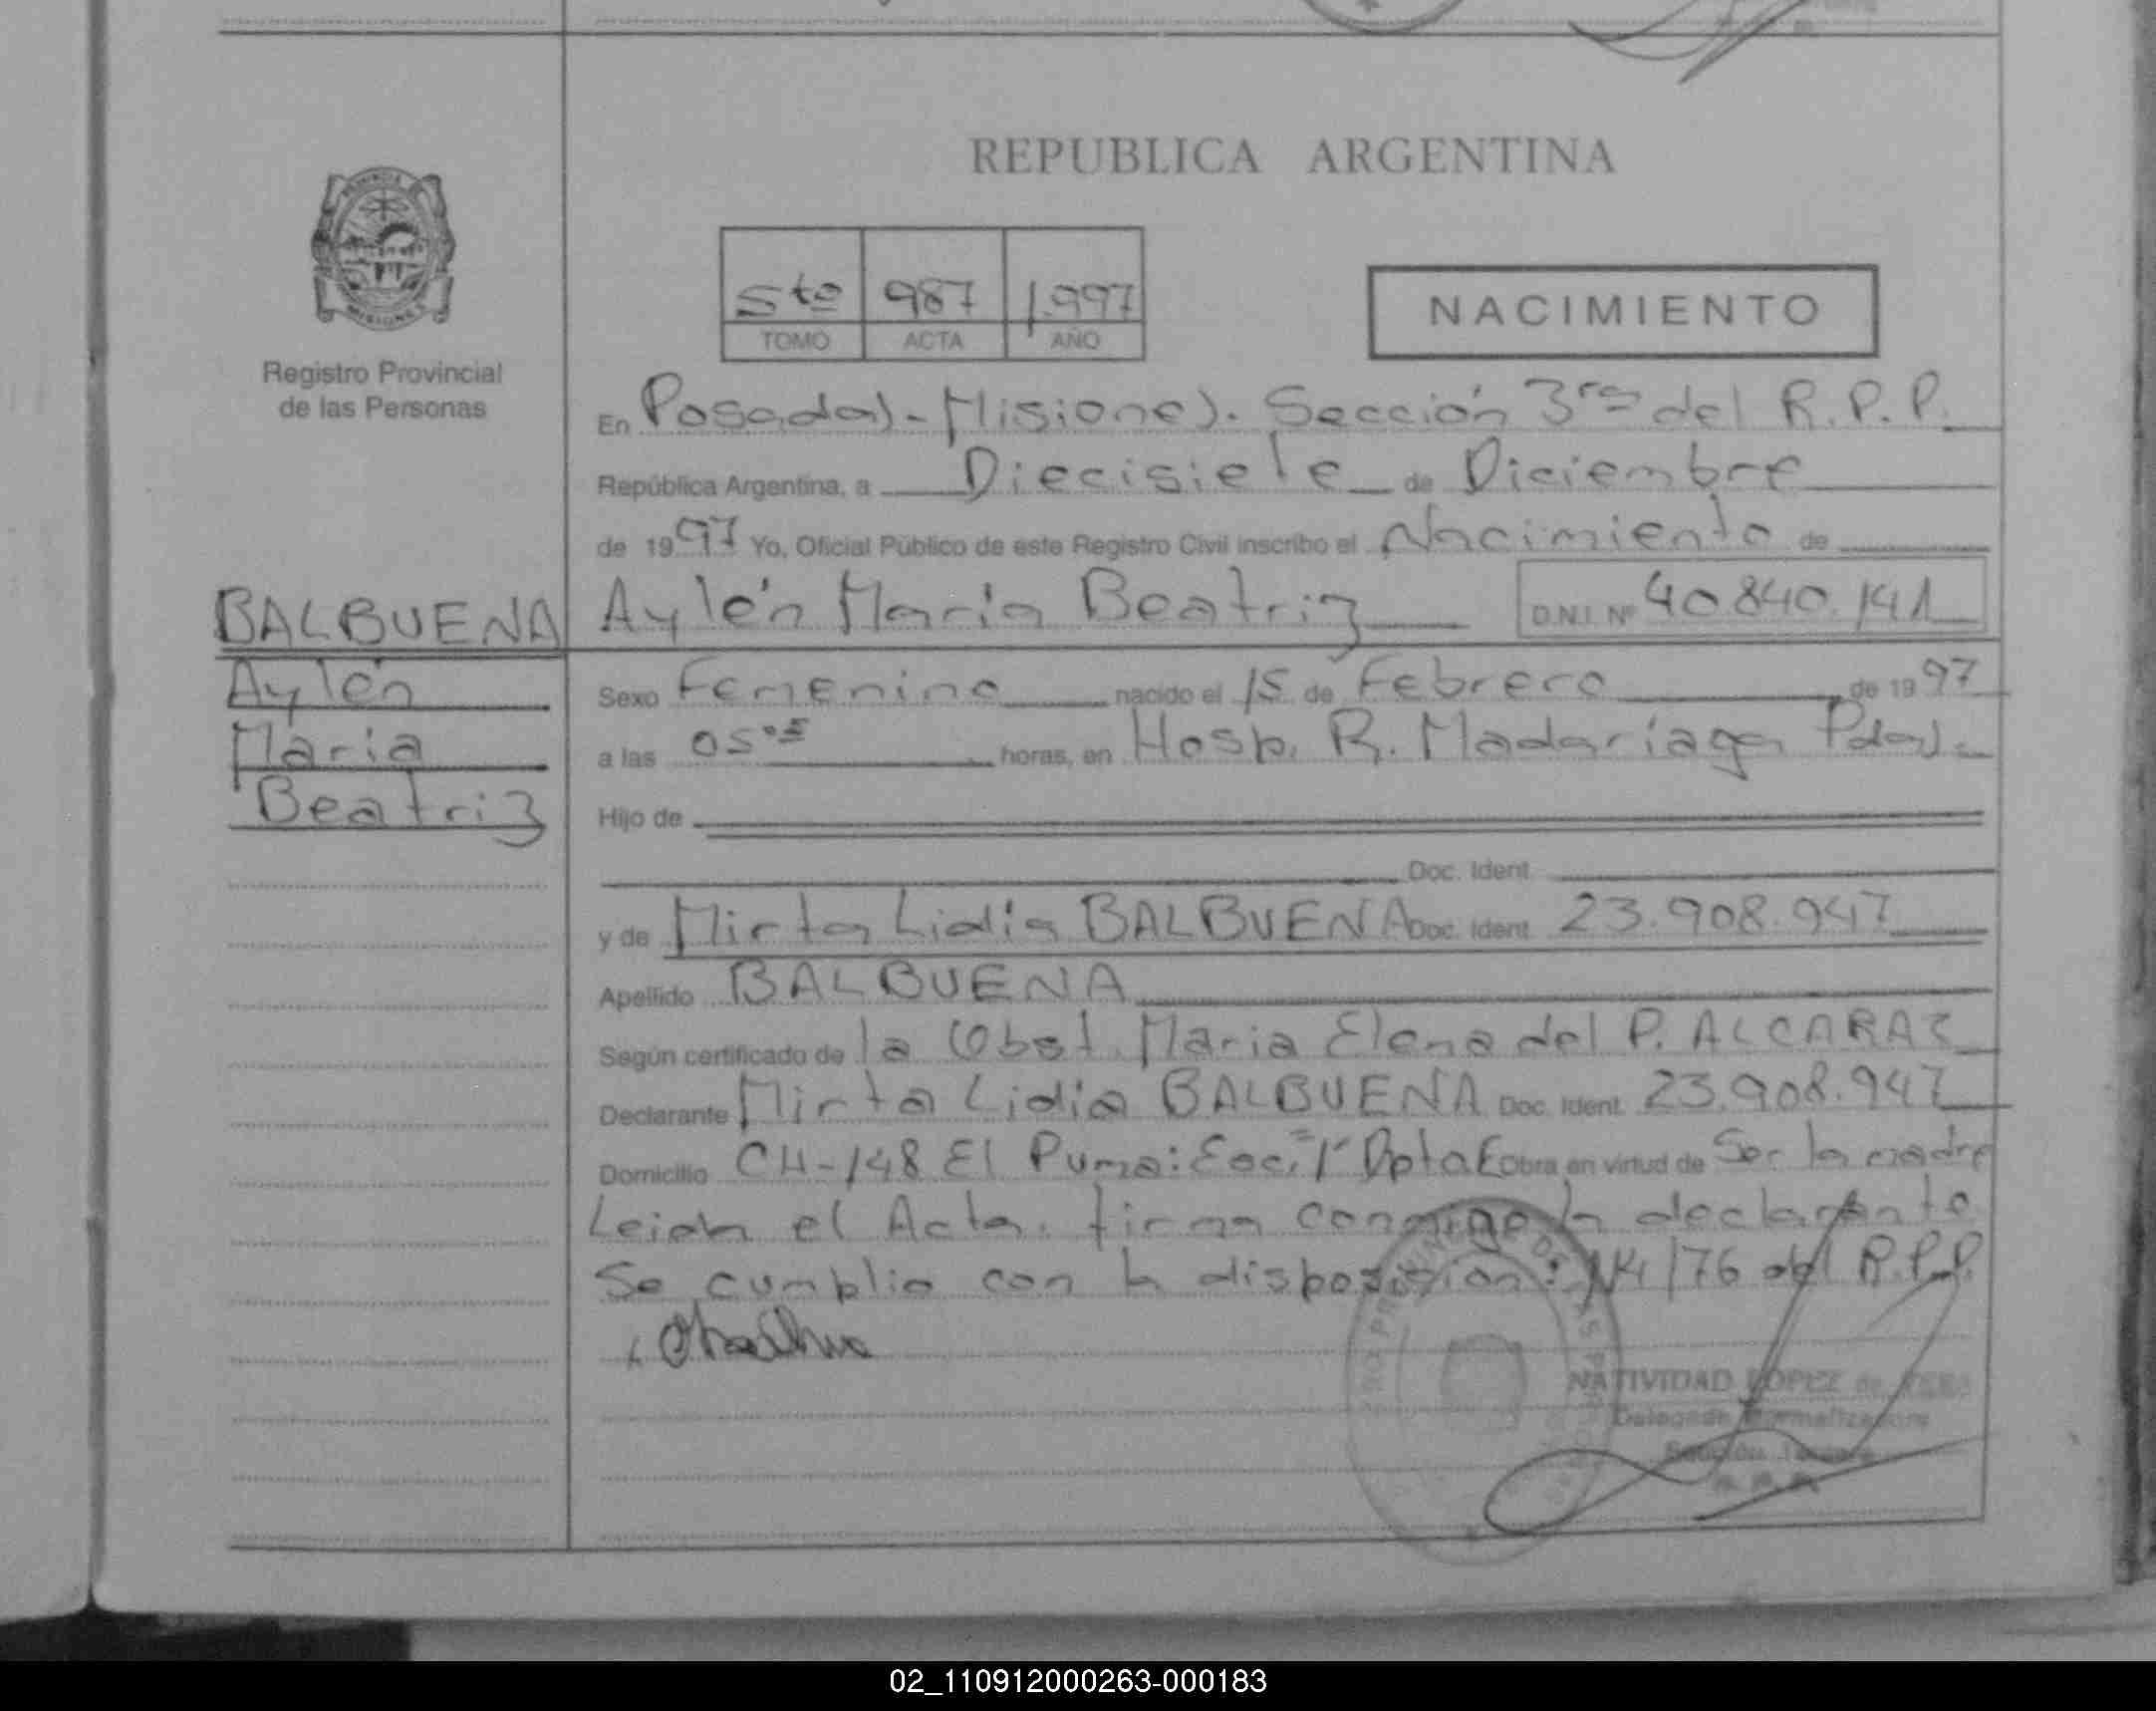 REPUBLICA ARGENTINA
5to 987 1.997
TOMO ACTA AÑO
NACIMIENTO
Registro Provincial
de las Personas
En Posadas - Misiones. Sección 3ra del R.P.P.
República Argentina, a Diecisiete de Diciembre
de 1997 Yo, Oficial Público de este Registro Civil inscribo el Nacimiento de
BALBUENA
Aylén
Maria
Beatriz
Aylén María Beatriz D.N.I. Nº 40.840.141
Sexo Femenino nacido el 15 de Febrero de 1997
a las 05 horas, en Hosp. R. Madariaga Pdas.
Hijo de
Doc. Ident
y de Mirta Lidia BALBUENA Doc. Ident 23.908.947
Apellido BALBUENA
Según certificado de la Obst. Maria Elena del P. ALCARAZ
Declarante Mirta Lidia BALBUENA Doc. Ident. 23.908.947
Domicilio CH-148 El Puma: Esc. 1 Dpta E obra en virtud de Ser la madre
Leida el Acta. firma conmigo la declarante
Se cumplio con la disposición: Nº4/76 del R.P.P.
NATIVIDAD LOPEZ de VERA
Delegada Normalizadora
02_110912000263-000183